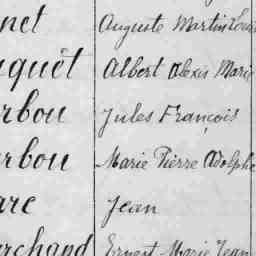 net Auguste Martin Louis
uquêt Albert Alexis Marie
rbou Jules François
rbou Marie Pierre Adolphe
arc Jean
archand Ernest Marie Jean